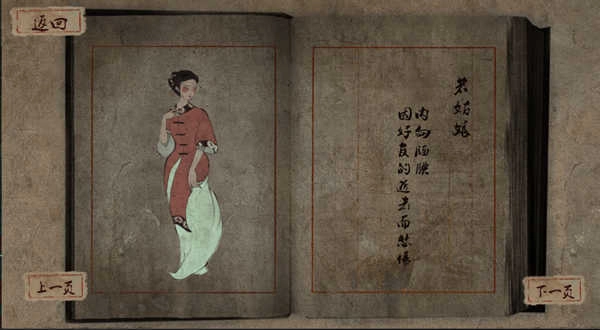 返回
若姑娘
内向腼腆
因好友的逝去而悲恸
上一页
下一页